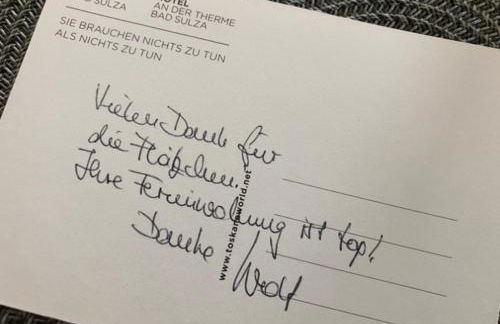 HOTEL
AN DER THERME
BAD SULZA
SULZA
SIE BRAUCHEN NICHTS ZU TUN
ALS NICHTS ZU TUN
Vielen Dank für
die Plätzchen.
Ihre Ferienwohnung ist top!
Danke
www.toskanaworld.net